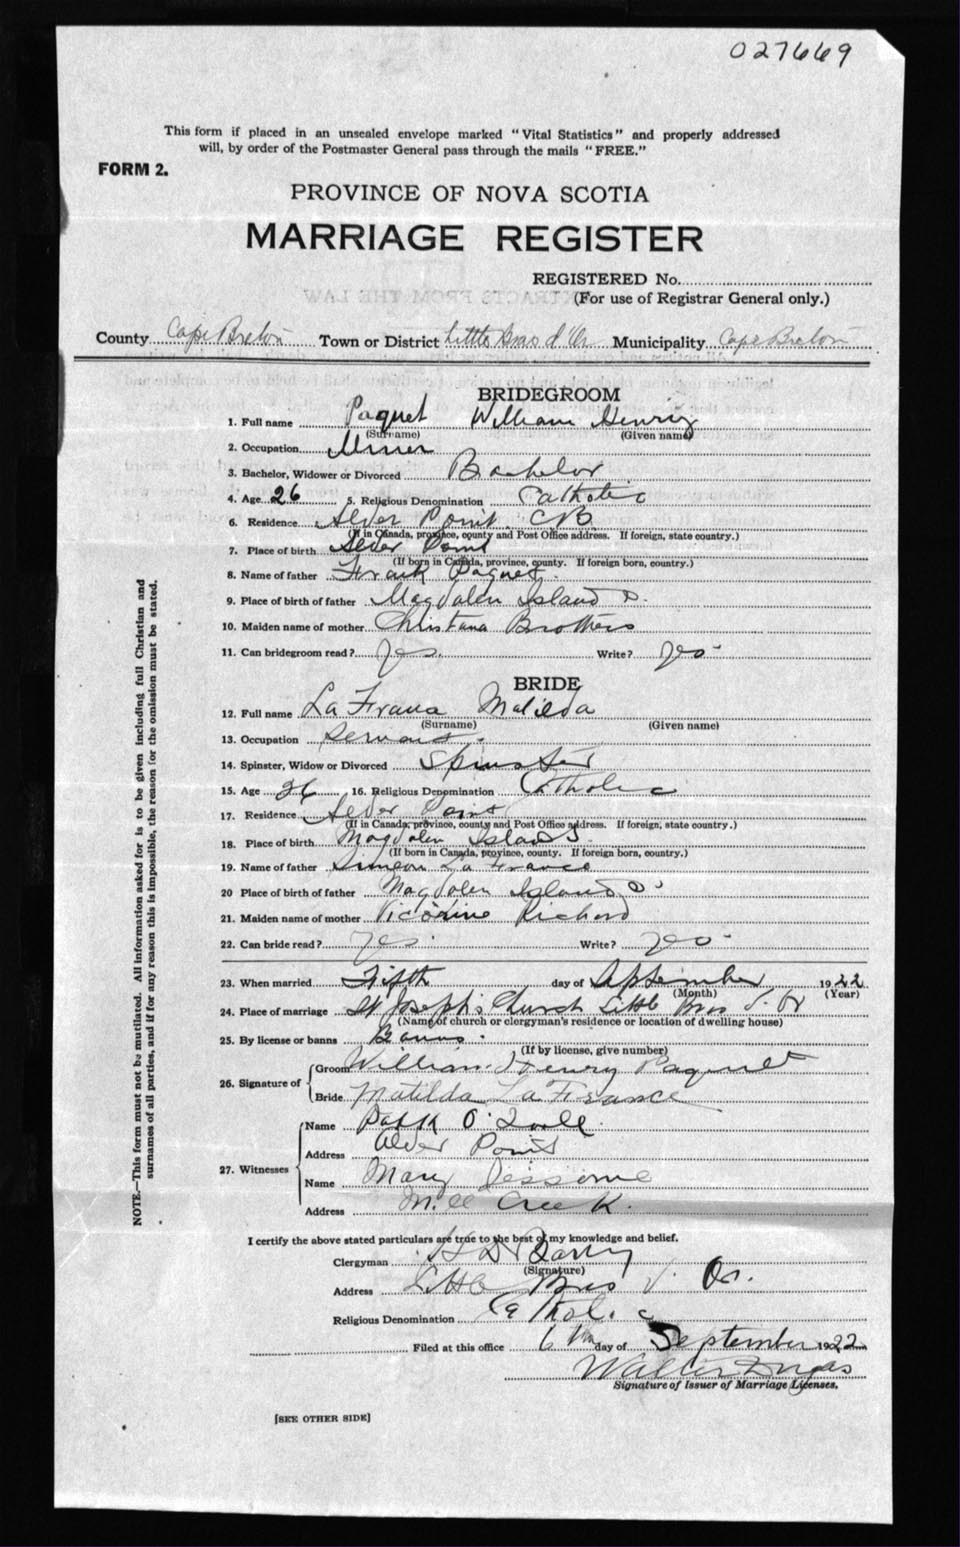 027669
This form if placed in an unsealed envelope marked "Vital Statistics" and properly addressed
will, by order of the Postmaster General pass through the mails "FREE."
FORM 2.
PROVINCE OF NOVA SCOTIA
MARRIAGE REGISTER
REGISTERED No.
(For use of Registrar General only.)
County Cape Breton Town or District Little Bras d'Or Municipality Cape Breton
BRIDEGROOM
1. Full name Paquet William Henry
(Surname) (Given name)
2. Occupation Miner
3. Bachelor, Widower or Divorced Bachelor
4. Age 26 5. Religious Denomination Catholic
6. Residence Alder Point CB
(If in Canada, province, county and Post Office address. If foreign, state country.)
7. Place of birth Alder Point
(If born in Canada, province, county. If foreign born, country.)
8. Name of father Frank Paquet
9. Place of birth of father Magdalen Islands
10. Maiden name of mother Christana Brothers
11. Can bridegroom read? Yes Write? Yes
BRIDE
12. Full name La Frana Matilda
(Surname) (Given name)
13. Occupation Servant
14. Spinster, Widow or Divorced Spinster
15. Age 26 16. Religious Denomination Catholic
17. Residence Alder Point
(If in Canada, province, county and Post Office address. If foreign, state country.)
18. Place of birth Magdalen Islands
(If born in Canada, province, county. If foreign born, country.)
19. Name of father Simeon La France
20 Place of birth of father Magdalen Islands
21. Maiden name of mother Victorine Richard
22. Can bride read? Yes Write? Yes
23. When married Fifth day of September 1922
(Month) (Year)
24. Place of marriage St Joseph's Church Little Bras d'Or
(Name of church or clergyman's residence or location of dwelling house)
25. By license or banns Banns
(If by license, give number)
26. Signature of Groom William Henry Paquet
Bride Matilda La France
27. Witnesses Name O'Toole
Address Alder Point
Name Mary Jessome
Address Mill Creek
I certify the above stated particulars are true to the best of my knowledge and belief.
Clergyman
(Signature)
Address Little Bras d'Or.
Religious Denomination Catholic
Filed at this office 6th day of September 1922
Walter
Signature of Issuer of Marriage Licenses.
[SEE OTHER SIDE]
NOTE.—This form must not be mutilated. All information asked for is to be given including full Christian and
surnames of all parties, and if for any reason this is impossible, the reason for the omission must be stated.